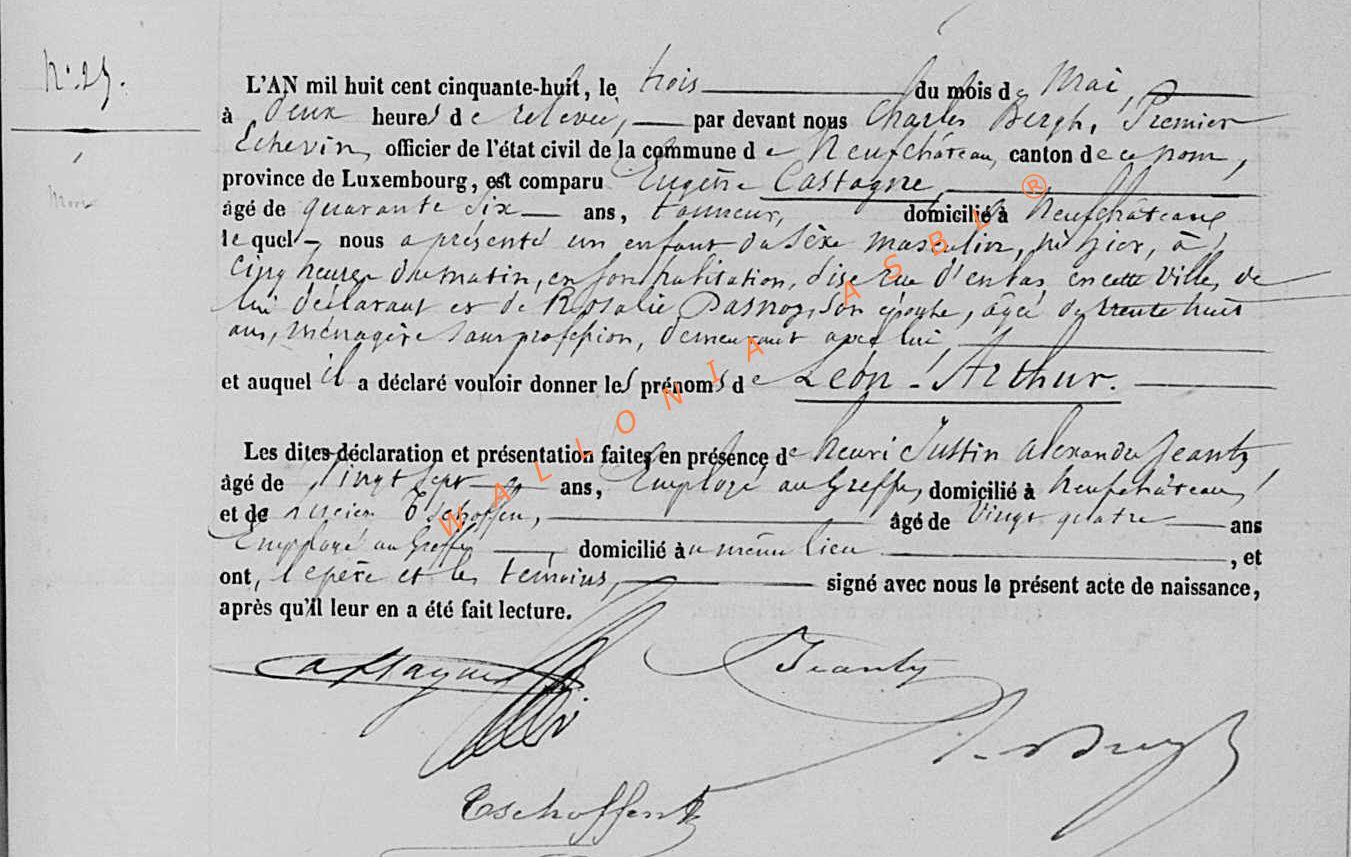 N° 25.
L'AN mil huit cent cinquante-huit, le trois du mois de Mai,
à deux heures de relevée, par devant nous Charles Bergh, Premier
Echevin, officier de l'état civil de la commune de Neufchâteau, canton de ce nom,
province de Luxembourg, est comparu Eugène Castagne,
âgé de quarante six ans, tanneur, domicilié à Neufchâteau,
lequel nous a présenté un enfant du sèxe masculin, né hier, à
cinq heures du matin, en son habitation, dise rue d'en bas, en cette ville, de
lui déclarant et de Rosalie Pasnog, son épouse, agée de trente huit
ans, ménagère sans profession, demeurant avec lui,
et auquel il a déclaré vouloir donner les prénoms de Léon-Arthur.
Les dites déclaration et présentation faites en présence de henri Justin alexandre Jeanty
âgé de vingt sept ans, Employé au Greffe, domicilié à Neufchâteau,
et de Tschoffen, âgé de vingt quatre ans
Employé au Greffe, domicilié au même lieu, et
ont, le père et les témoins, signé avec nous le présent acte de naissance,
après qu'il leur en a été fait lecture.
Castagne
Jeanty
Tschoffen
WALLONIA ASBL ®